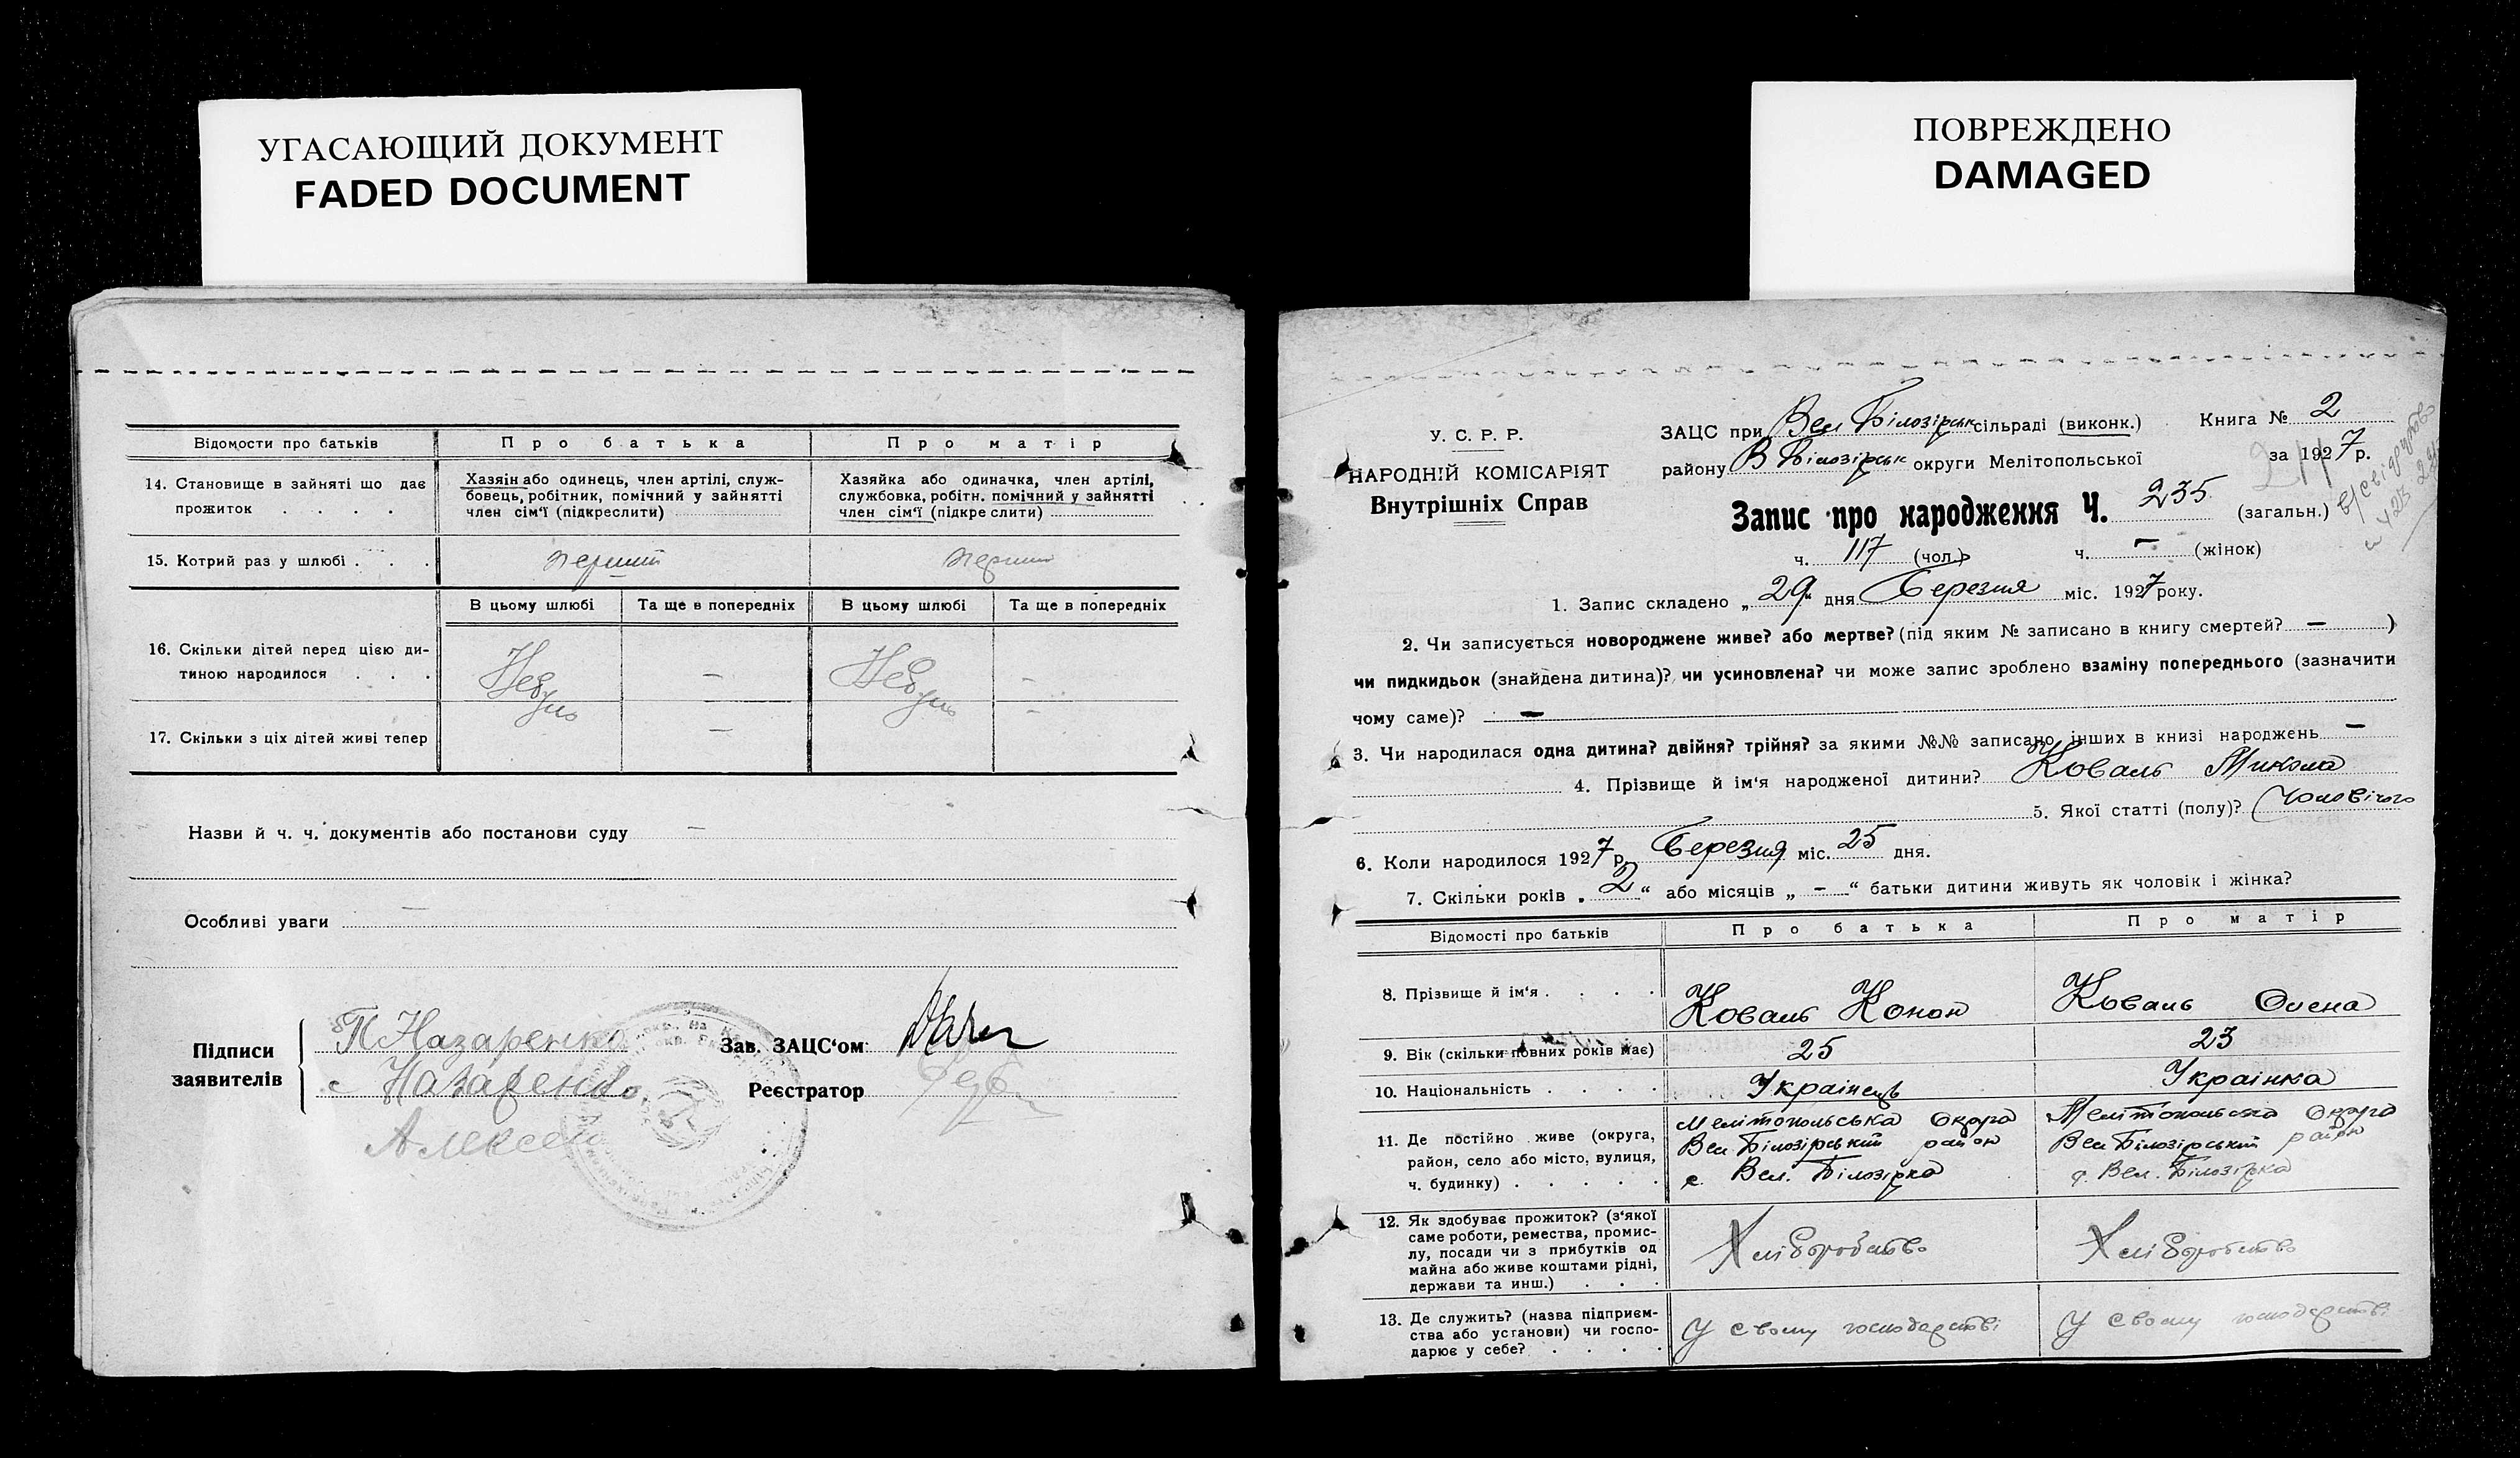 УГАСАЮЩИЙ ДОКУМЕНТ
FADED DOCUMENT
Відомости про батьків
Про батька
Про матір
14. Становище в зайняті що дає прожиток . . . .
Хазяін або одинець, член артілі, служ-
бовець, робітник, помічний у зайнятті
член сім'ї (підкреслити)
Хазяйка або одиначка, член артілі,
службовка, робітн. помічний у зайнятті
член сім'ї (підкре слити)
15. Котрий раз у шлюбі . . .
перший
перший
В цьому шлюбі
Та ще в попередніх
В цьому шлюбі
Та ще в попередніх
16. Скільки дітей перед цією ди-
тиною народилося . . .
Небуло
–
Небуло
–
17. Скільки з ціх дітей живі тепер
–
–
Назви й ч. ч. документів або постанови суду –
Особливі уваги –
Підписи
заявителів
П Назаренко
с Назаренко
Алексей
Зав. ЗАЦС'ом
Реєстратор
ПОВРЕЖДЕНО
DAMAGED
У. С. Р. Р.
НАРОДНІЙ КОМІСАРІЯТ
Внутрішніх Справ
ЗАЦС при Вел Білозірськ сільраді (виконк.)
Книга № 2
району В Білозірськ округи Мелітопольської
за 1927 р.
Запис про народження Ч. 235 (загальн.)
ч. 117 (чол.) ч. – (жінок)
1. Запис складено „29" дня Березня міс. 1927 року.
2. Чи записується новороджене живе? або мертве? (під яким № записано в книгу смертей? – )
чи пидкидьок (знайдена дитина)? чи усиновлена? чи може запис зроблено взаміну попереднього (зазначити
чому саме)? –
3. Чи народилася одна дитина? двійня? трійня? за якими №№ записано інших в книзі народжень –
4. Прізвище й ім'я народженої дитини? Коваль Микола
5. Якої статті (полу)? Чоловічого
6. Коли народилося 1927 р. Березня міс. 25 дня.
7. Скільки років „2" або місяців „–" батьки дитини живуть як чоловік і жінка?
Відомості про батьків
Про батька
Про матір
8. Прізвище й ім'я . . . .
Коваль Конон
Коваль Олена
9. Вік (скільки повних років має)
25
23
10. Національність . . . .
Українець
Українка
11. Де постійно живе (округа,
район, село або місто, вулиця,
ч. будинку) . . . . .
Мелітопольська Округа
Вел Білозірський район
с. Вел. Білозірка
Мелітопольська Округа
Вел Білозірський район
с. Вел. Білозірка
12. Як здобуває прожиток? (з'якої
саме роботи, ремества, промис-
лу, посади чи з прибутків од
майна або живе коштами рідні,
держави та инш.) . . .
Хліборобство
Хліборобство
13. Де служить? (назва підприєм-
ства або установи) чи госпо-
дарює у себе? . . . .
У своєму господарстві
У своєму господарстві